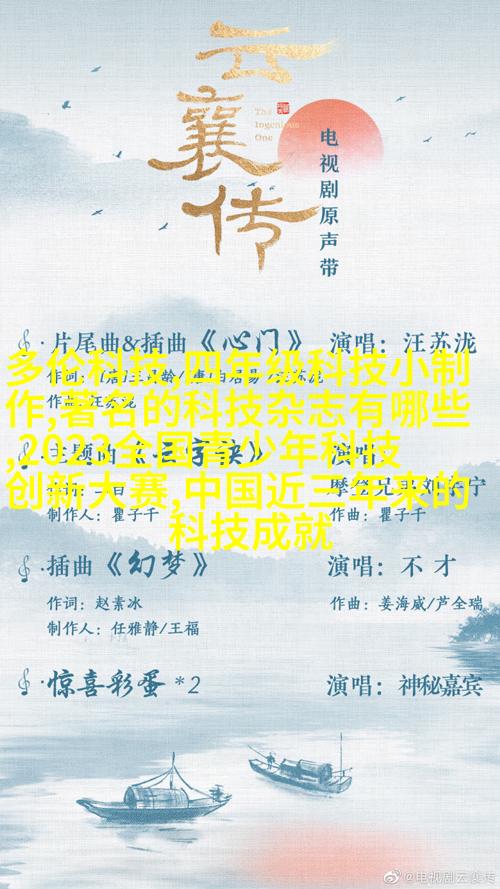 云襄传
The
Ingenious
One
电视剧原声带
片尾曲&插曲《心门》 演唱：汪苏泷
多伦科技,四年级科技小制
作,著名的科技杂志有哪些
,2023全国青少年科技
创新大赛,中国近三年来的
科技成就
作曲：汪苏泷
主题曲
演唱：
制作人：瞿子千
作曲：瞿子千
插曲《幻梦》 演唱：不才
作词：赵素冰 作曲：姜海威/芦全瑞
制作人：任雅静/王福
惊喜彩蛋*2 演唱：神秘嘉宾
@电视剧云襄传